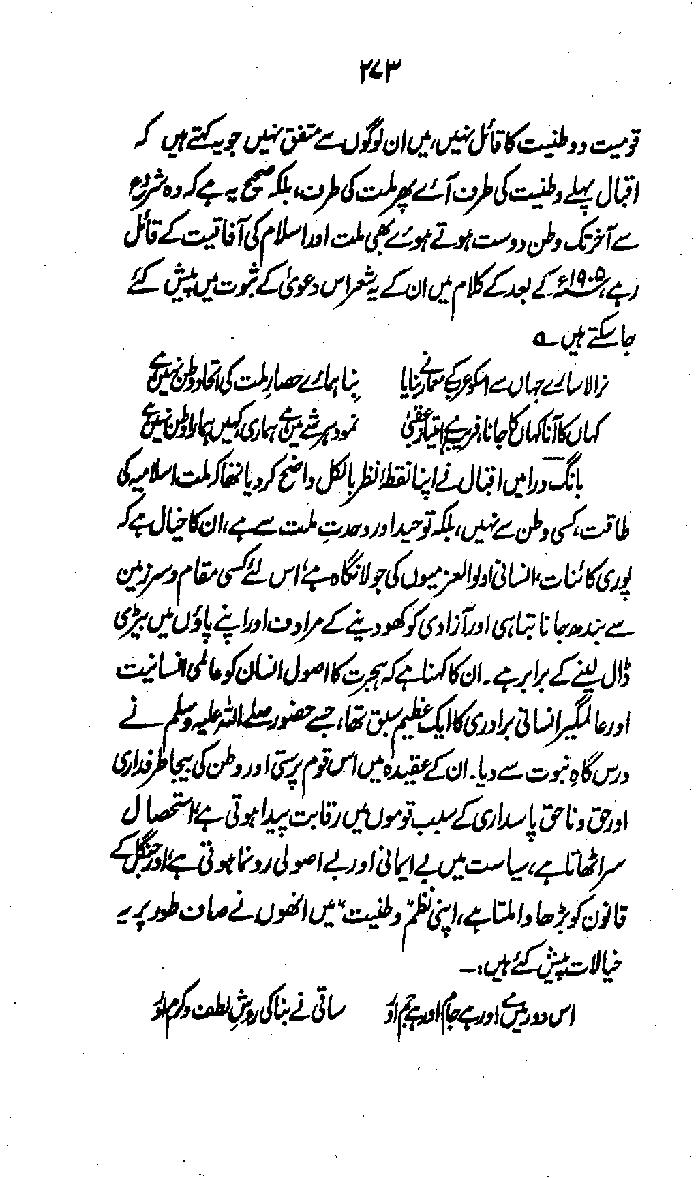 ۲۷۳
قومیت و وطنیت کا قائل نہیں، میں ان لوگوں سے متفق نہیں جو یہ کہتے ہیں کہ
اقبال پہلے وطنیت کی طرف آئے پھر ملت کی طرف، بلکہ صحیح یہ ہے کہ وہ شروع
سے آخر تک وطن دوست ہوتے ہوئے بھی ملت اور اسلام کی آفاقیت کے قائل
رہے، ۱۹۰۵ء کے بعد کے کلام میں ان کے یہ شعر اس دعویٰ کے ثبوت میں پیش کئے
جا سکتے ہیں ؎
نرالا سارے جہاں سے اسکو عرب کے معمار نے بنایا بنا ہمارے حصار ملت کی اتحاد وطن نہیں ہے
کہاں کا آنا کہاں کا جانا، فریب ہے امتیاز عقبیٰ نمود ہر شے میں ہے ہماری کہیں ہمارا وطن نہیں ہے
بانگ درا میں اقبال نے اپنا نقطۂ نظر بالکل واضح کر دیا تھا کہ ملت اسلامیہ کی
طاقت، کسی وطن سے نہیں، بلکہ توحید اور وحدتِ ملت سے ہے، ان کا خیال ہے کہ
پوری کائنات، انسانی اولوالعزمیوں کی جولانگاہ ہے، اس لئے کسی مقام و سرزمین
سے بندھ جانا تباہی اور آزادی کو کھو دینے کے مرادف اور اپنے پاؤں میں بیڑی
ڈال لینے کے برابر ہے۔ ان کا کہنا ہے کہ ہجرت کا اصول انسان کو عالمی انسانیت
اور عالمگیر انسانی برادری کا ایک عظیم سبق تھا، جسے حضور صلے اللہ علیہ وسلم نے
درس گاہِ نبوت سے دیا۔ ان کے عقیدہ میں اس قوم پرستی اور وطن کی بیجا طرفداری
اور حق و ناحق پاسداری کے سبب قوموں میں رقابت پیدا ہوتی ہے، استحصال
سر اٹھاتا ہے، سیاست میں بے ایمانی اور بے اصولی رونما ہوتی ہے، اور جنگل کے
قانون کو بڑھاوا ملتا ہے، اپنی نظم "وطنیت" میں انھوں نے صاف طور پر یہ
خیالات پیش کئے ہیں:۔
اس دور میں مے اور ہے جام اور ہے جم اور ساقی نے بنا کی روشِ لطف و کرم اور